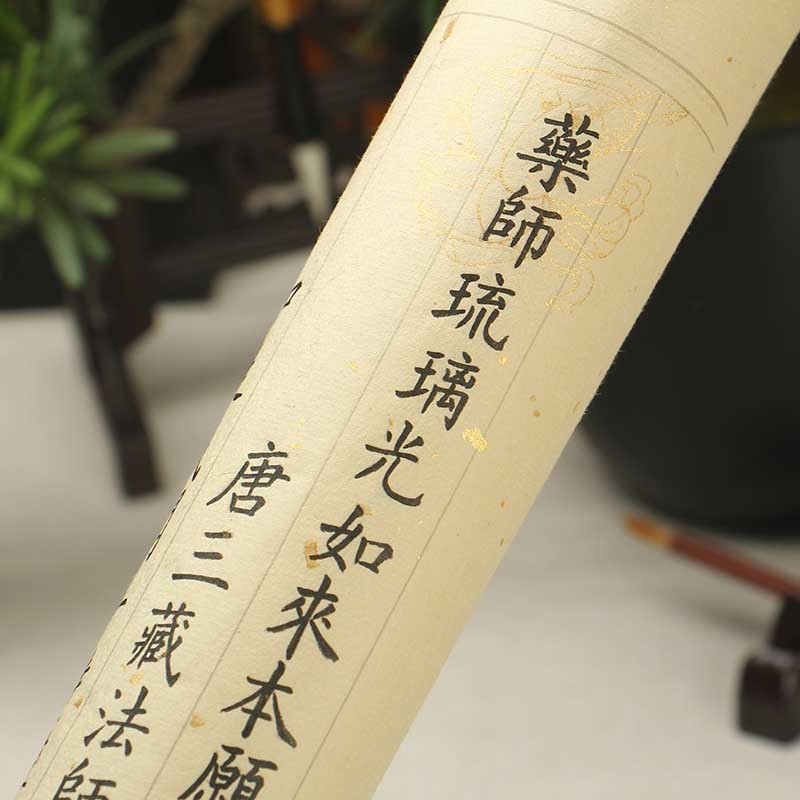 藥師琉璃光如來本願
唐三藏法師